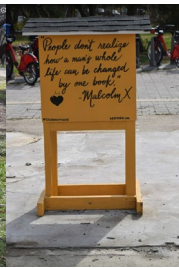 People don't realize
how a man's whole
life can be changed
by one book."
-Malcolm X